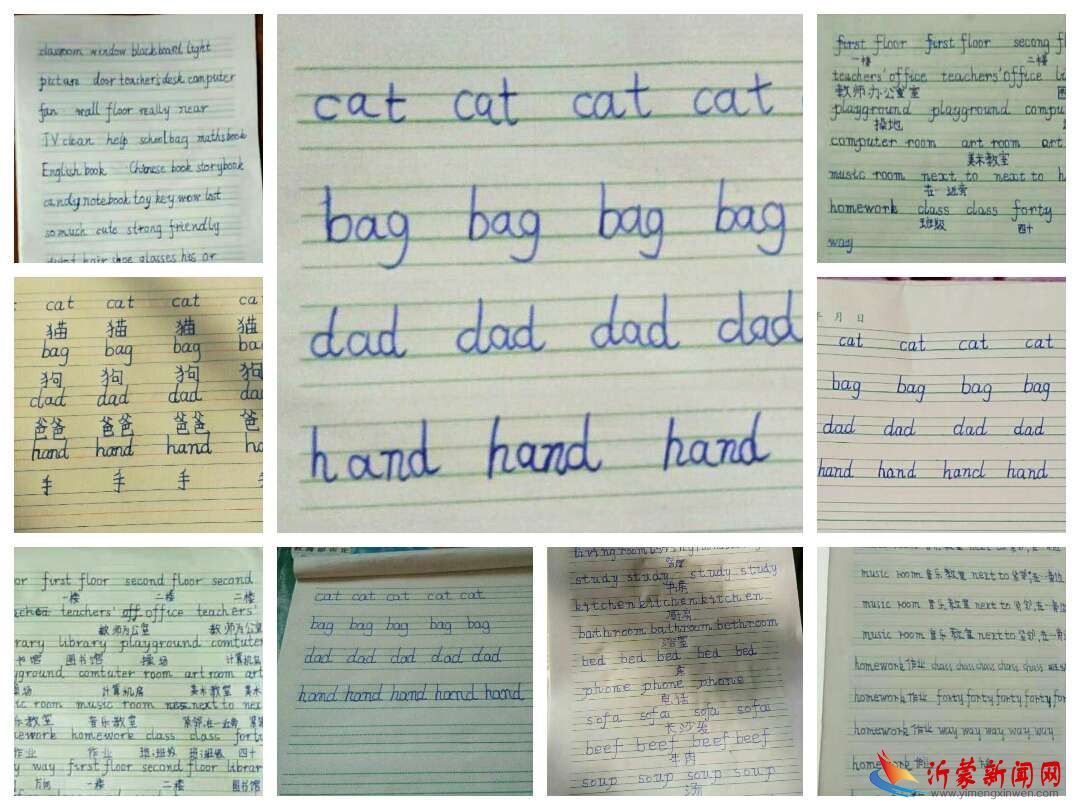 classroom window blackboard light
picture door teacher's desk computer
fan wall floor really near
TV clean help schoolbag maths book
English book Chinese book storybook
candy notebook toy key wow lost
so much cute strong friendly
hair shoe glasses his or
cat cat cat cat
bag bag bag bag
dad dad dad dad
hand hand hand
first floor first floor second fl
一楼 二楼
teachers' office teachers' office li
教师办公室室
playground playground compu
操地
computer room art room art
美术教室
music room next to next to h
在一边旁
homework class class forty
班级 四十
way
cat cat cat ca
猫 猫 猫 猫
bag bag bag ba
狗 狗 狗 狗
dad dad dad da
爸爸 爸爸 爸爸 爸
hand hand hand ha
手 手 手
年 月 日
cat cat cat cat
bag bag bag bag
dad dad dad dad
hand hand hand hand
or first floor second floor second
一楼 二楼 二楼
teachers' off office teachers'
教师办公室 教师办公室
rary library playground comtuter
书馆 图书馆 操场 计算机
yground comtuter room art room art
场 计算机房 美术教室 美术
ic room music room next to nex
乐教室 音乐教室
ework homework class class fort
作业 作业 班;班级 班;班级 四十
y way first floor second floor librar
方向 一楼 二楼 图书馆
cat cat cat cat cat
bag bag bag bag bag
dad dad dad dad dad
hand hand hand hand hand
living room
客厅
study study study study
书房
kitchen kitchen kitchen
厨房
bathroom bathroom bethroom
浴室
bed bed bed bed bed
床
phone phone phone
电话
sofa sofa sofa sofa
长沙发
beef beef beef beef
牛肉
soup soup soup soup
汤
music room 音乐教室 next to
music room 音乐教室 next to
music room 音乐教室 next to
homework 作业 class class class class
homework 作业 forty forty forty forty
homework 作业 way way way way way
homework
沂蒙新闻网
www.yimengxinwen.com